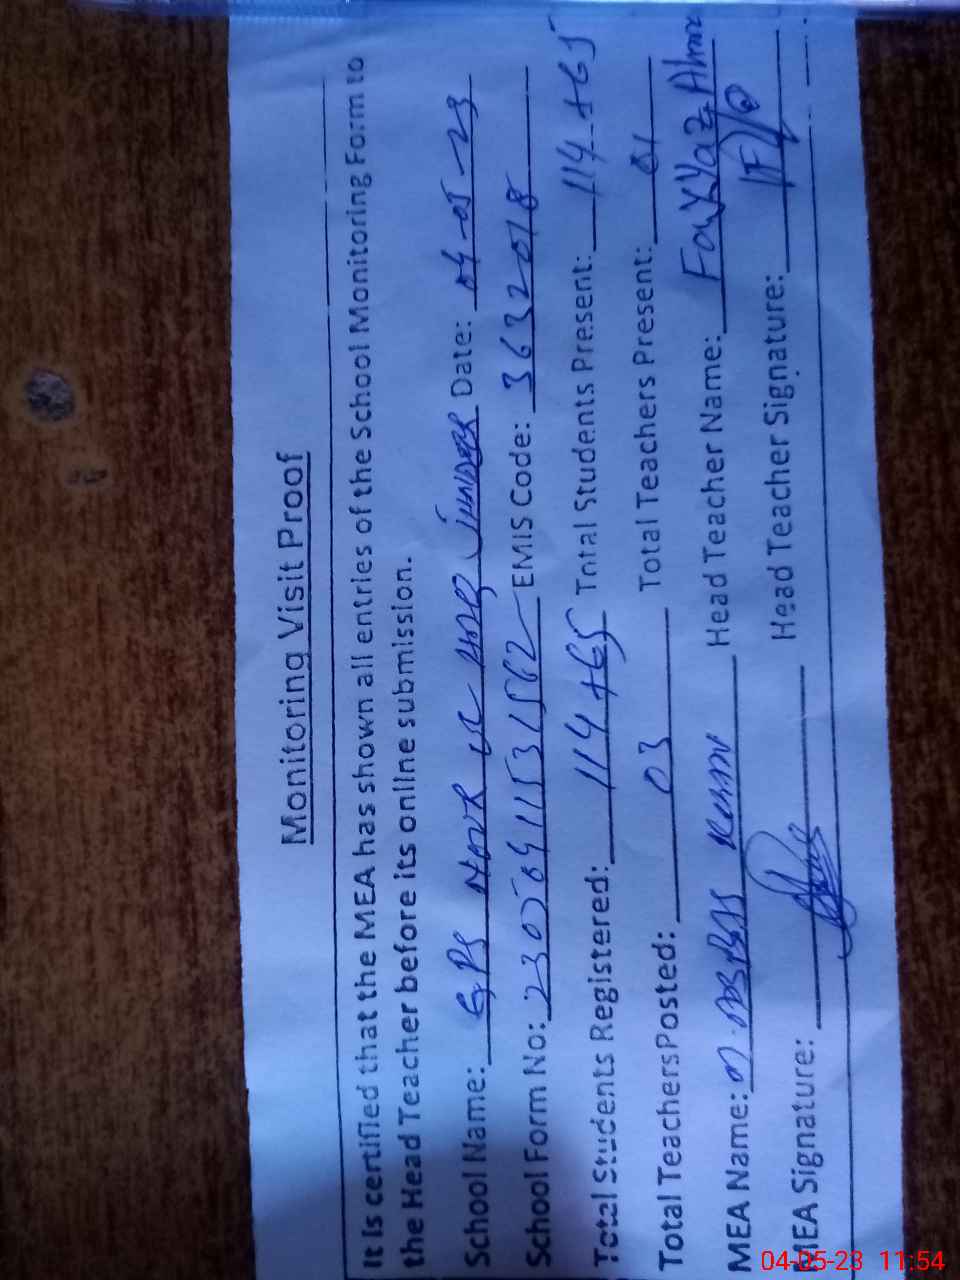 Monitoring Visit Proof
It is certified that the MEA has shown all entries of the School Monitoring Form to
the Head Teacher before its online submission.
School Name: GPS Date: 04-05-23
School Form No: EMIS Code: 36320178
Total Students Registered: 114+65 Total Students Present: 114+65
Total Teachers Posted: 03 Total Teachers Present: 01
MEA Name: Head Teacher Name: Fayyaz Ahmad
MEA Signature: Head Teacher Signature:
04-05-23 11:54